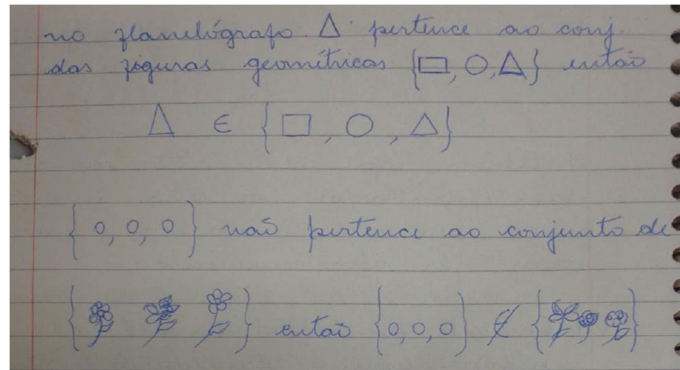 no flanelógrafo. Δ pertence ao conj.
das figuras geométricas {□, ○, Δ} então
Δ ∈ {□, ○, Δ}
{0, 0, 0} não pertence ao conjunto de
{ } então {0, 0, 0} ∉ { }